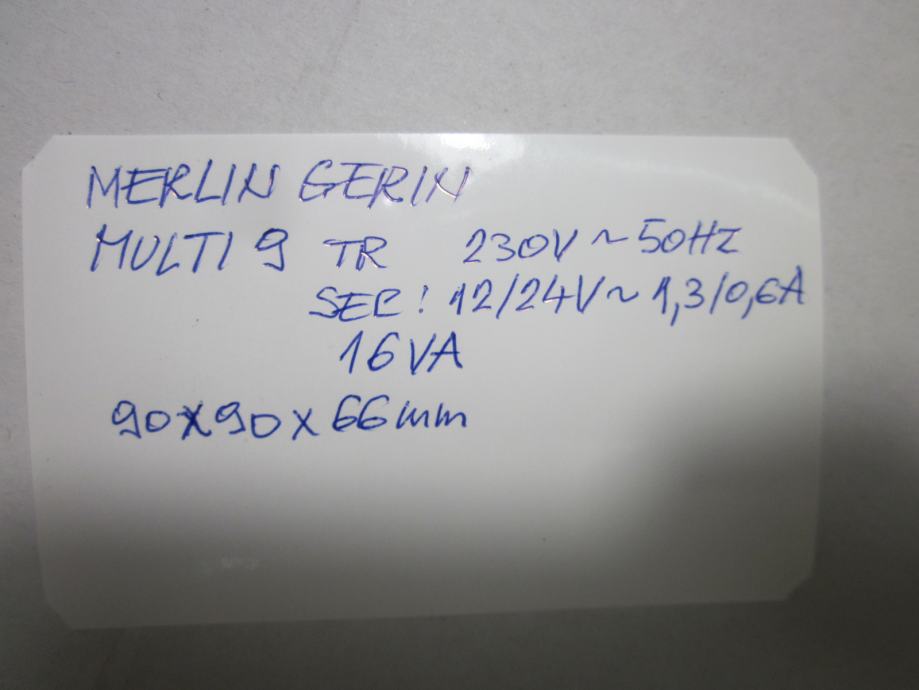 MERLIN GERIN
MULTI 9 TR 230V ~ 50HZ
SEC: 12/24V ~ 1,3/0,6A
16 VA
90x90x66mm